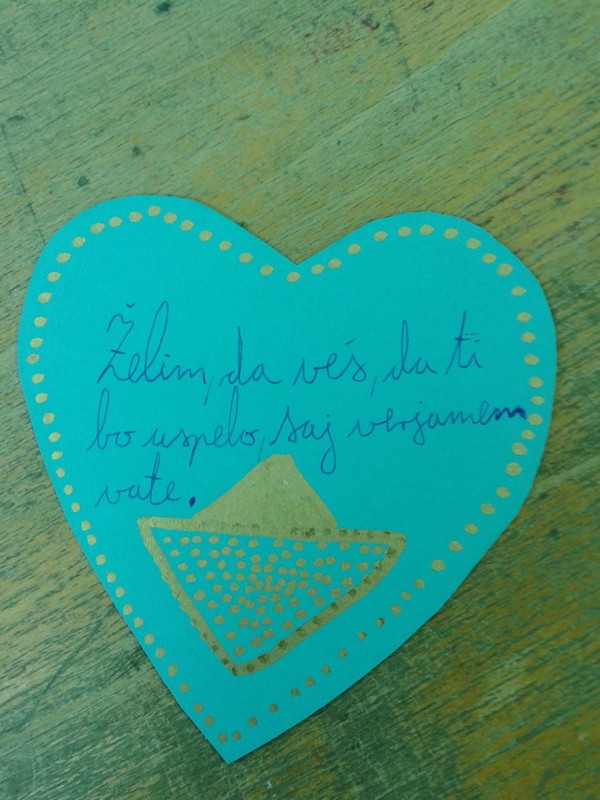 Želim, da veš, da ti
bo uspelo, saj verjamem
vate.